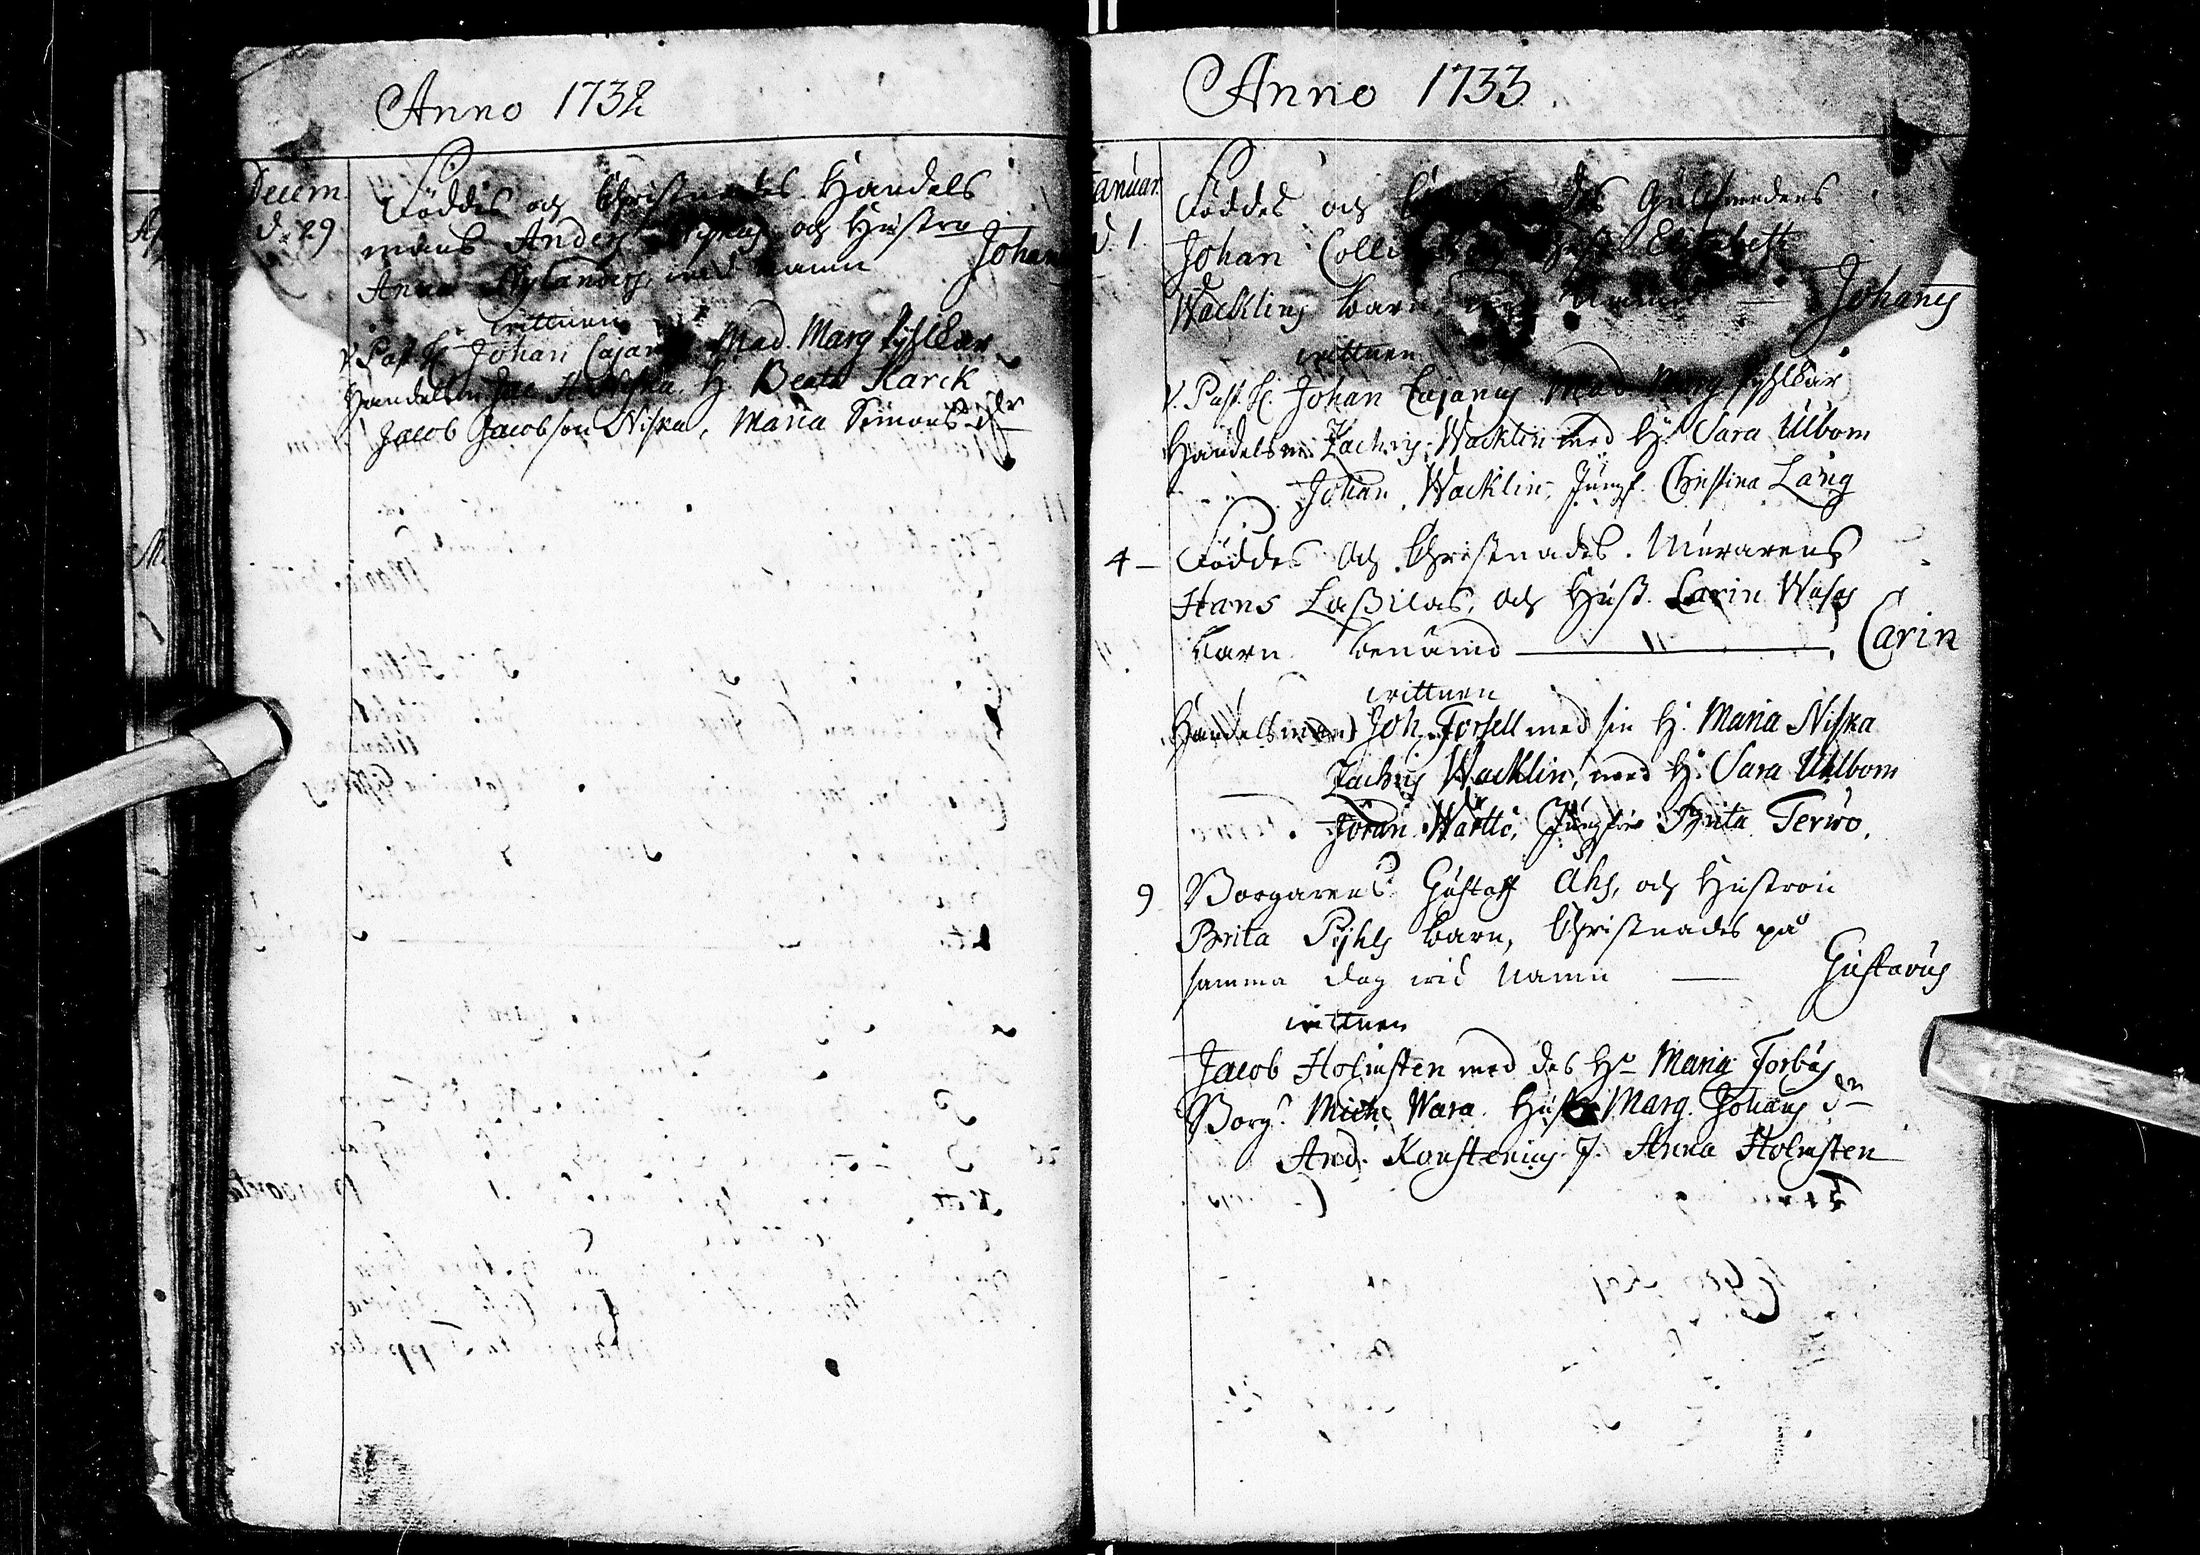 Anno 1732
Decem
d. 29
Föddes och Christnades Handels
mans Anders Niskas och Hustro
Anna Nylanders, med namn Johan
wittnen
V. Past. H. Johan Cajanus Mad. Marg
Handelsm. Jac. H. Niska, H. Beata Karck
Jacob Jacobson Niska, Maria Simons dr
Anno 1733
Januar.
d. 1.
Föddes och Gullsmedens
Johan Elisabeth
Wacklins barn, med namn — Johannes
wittnen
V. Past. H. Johan Cajanus Mad. Marg
Handelsm. Zachris Wacklin med H. Sara Ulbom
Johan Wacklin, Jungf. Christina Lång
4 – Föddes och Christnades Murarens
Hans Laßilas, och Hust. Carin Wasas
barn benämd — " — Carin
wittnen
Handelsman Joh. Forsell med sin H. Maria Niska
Zachris Wacklin, med H. Sara Uhlbom
Jöran Wattö, Jungfru Brita Terwo.
9 Borgarens Gustaff Ahs, och Hustron
Brita Pyhls barn, Christnades på
samma dag wid namn — Gustavus
wittnen
Jacob Holmsten med des Ho Maria Forbus
Borg. Mich. Wara. Hust. Marg. Johans dr
And. Konstenius J. Anna Holmsten